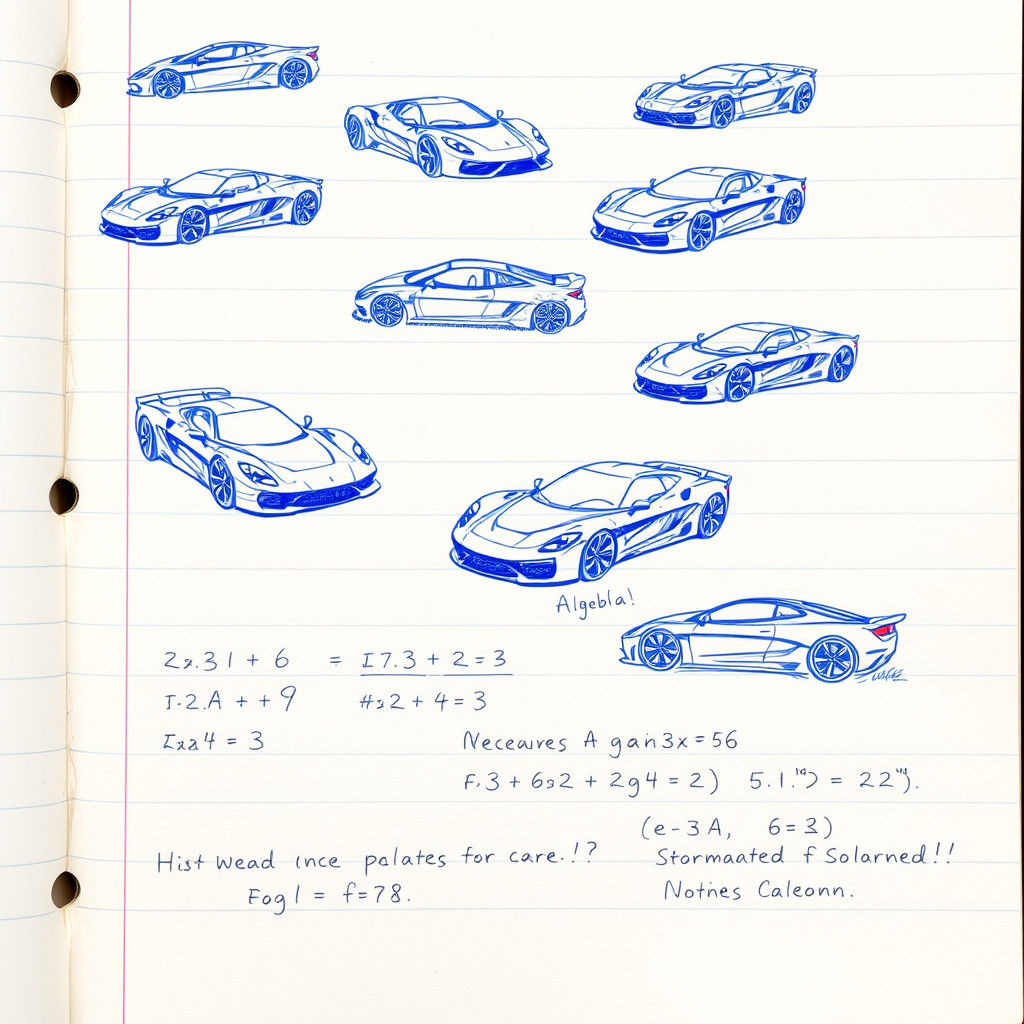 Algebla!
2x.31 + 6 = I7.3 + 2=3
I-2.A + + 9 #s2 + 4 = 3
Ixa4 = 3
Neceavres A gain3x=56
F.3 + 6s2 + 2g4 = 2) 5.1.") = 22").
(e-3A, 6=3)
Hist wead ince palates for care.!?
Stormaated f Solarned!!
Eogl = f=78.
Notnes Caleonn.